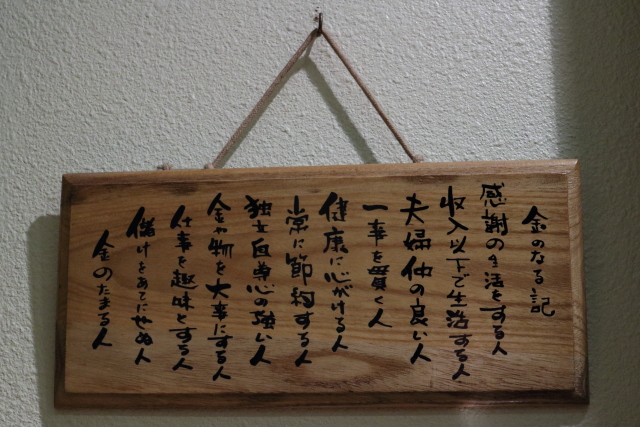 金のなる記
感謝の生活をする人
収入以下で生活する人
夫婦仲の良い人
一事を貫く人
健康に心がける人
常に節約する人
独立自尊心の強い人
金や物を大事にする人
仕事を趣味とする人
儲けをあてにせぬ人
金のたまる人